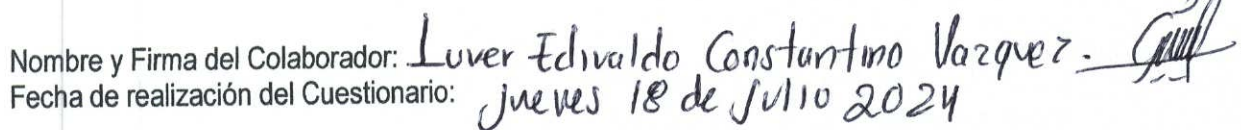 Nombre y Firma del Colaborador: Luver Edivaldo Constantino Vazquez.
Fecha de realización del Cuestionario: jueves 18 de julio 2024